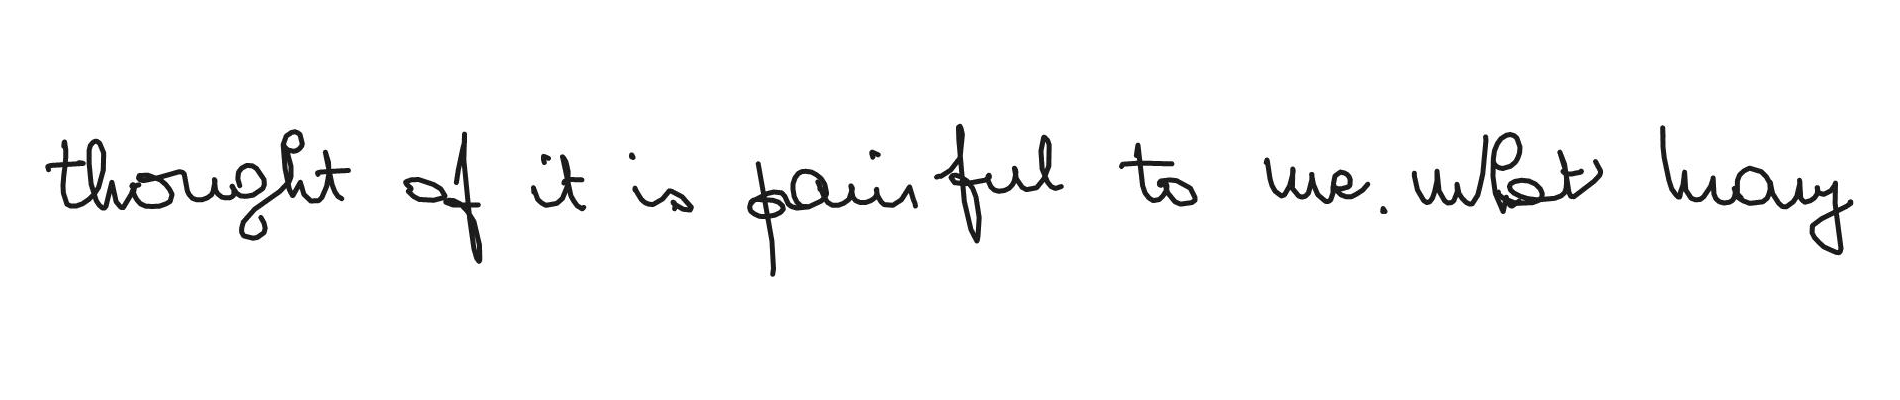 thought of it is painful to me. What may